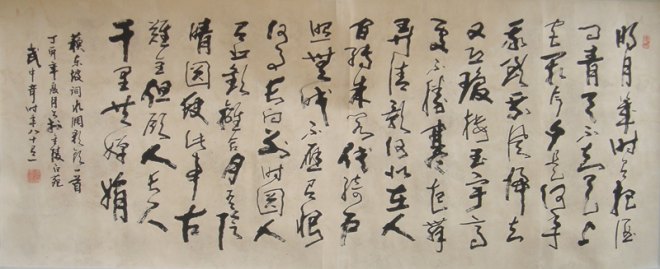 明月幾時有把酒
問青天不知天上
宮闕今夕是何年
我欲乘風歸去
又恐瓊樓玉宇高
處不勝寒起舞
弄清影何似在人
間轉朱閣低綺户
照無眠不應有恨
何事長向别時圓人
有悲歡離合月有陰
晴圓缺此事古
難全但願人長久
千里共嬋娟
蘇東坡詞水調歌頭一首
丁卯年月於金陵
武中奇時年八十一